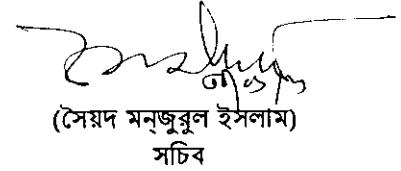 (সৈয়দ মন্জুরুল ইসলাম)
সচিব